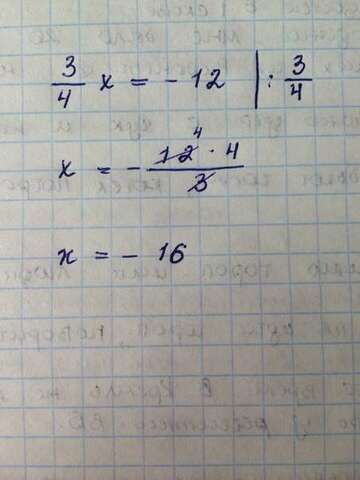 3/4 x = - 12 | : 3/4
x = - 12 4 · 4 / 3
x = - 16